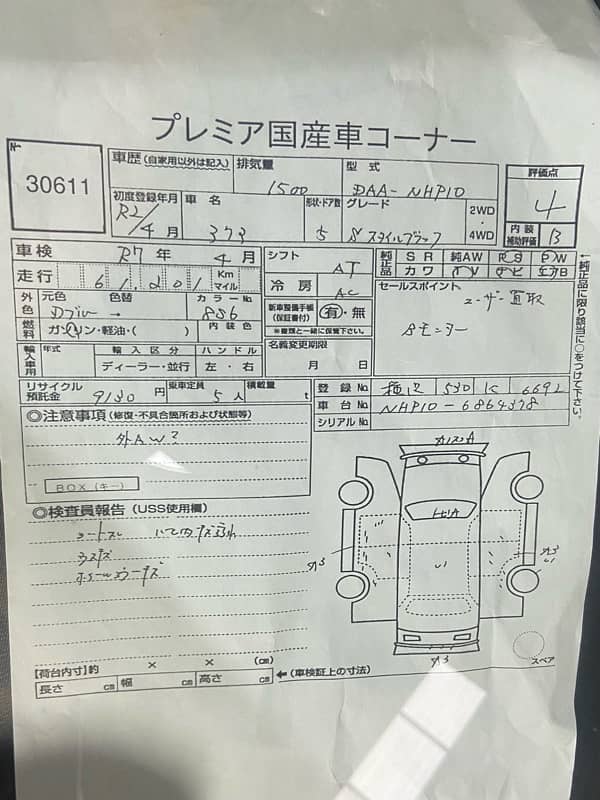 プレミア国産車コーナー
30611
車歴(自家用以外は記入)
排気量 1500
型式 DAA-NHP10
評価点 4
初度登録年月 R2/4月
車名 373
形状・ドア数 5
グレード Sスタイルブラック
2WD・4WD
内装補助評価 B
車検 R7年 4月
走行 61,201 Km マイル
シフト AT
冷房 AC
純正品 SR 純AW PS PW
カワ TV ナビ エアB
←純正品に限り該当に○をつけて下さい。
外色 元色 Dブルー 色替 → カラーNo 8S6
燃料 ガソリン・軽油・( ) 内装色
新車整備手帳(保証書付) 有・無
※書類と一緒に保管下さい。
セールスポイント
ユーザー買取
Aモニター
輸入車用 年式 輸入区分 ハンドル
ディーラー・並行 左・右
名義変更期限
月 日
リサイクル預託金 9130円
乗車定員 5人
積載量 t
登録No 530 6692
車台No NHP10-6864378
シリアルNo
◎注意事項(修復・不具合箇所および状態等)
外AW?
BOX(キー)
◎検査員報告(USS使用欄)
シートスレ
ウスキズ
A3
A3
A3
スペア
【荷台内寸】約 × × (cm)
長さ cm 幅 cm 高さ cm
←(車検証上の寸法)